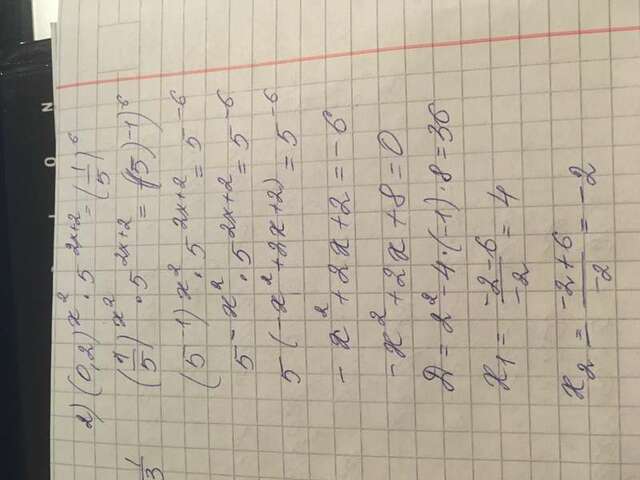 L O N
2) (0,2)^x² · 5^(2x+2) = (1/5)^6
1/3
(1/5)^x² · 5^(2x+2) = ((5)^-1)^6
(5^-1)^x² · 5^(2x+2) = 5^-6
5^-x² · 5^(2x+2) = 5^-6
5^(-x²+2x+2) = 5^-6
-x² + 2x + 2 = -6
-x² + 2x + 8 = 0
Д = 2² - 4 · (-1) · 8 = 36
x₁ = (-2-6)/(-2) = 4
x₂ = (-2+6)/(-2) = -2